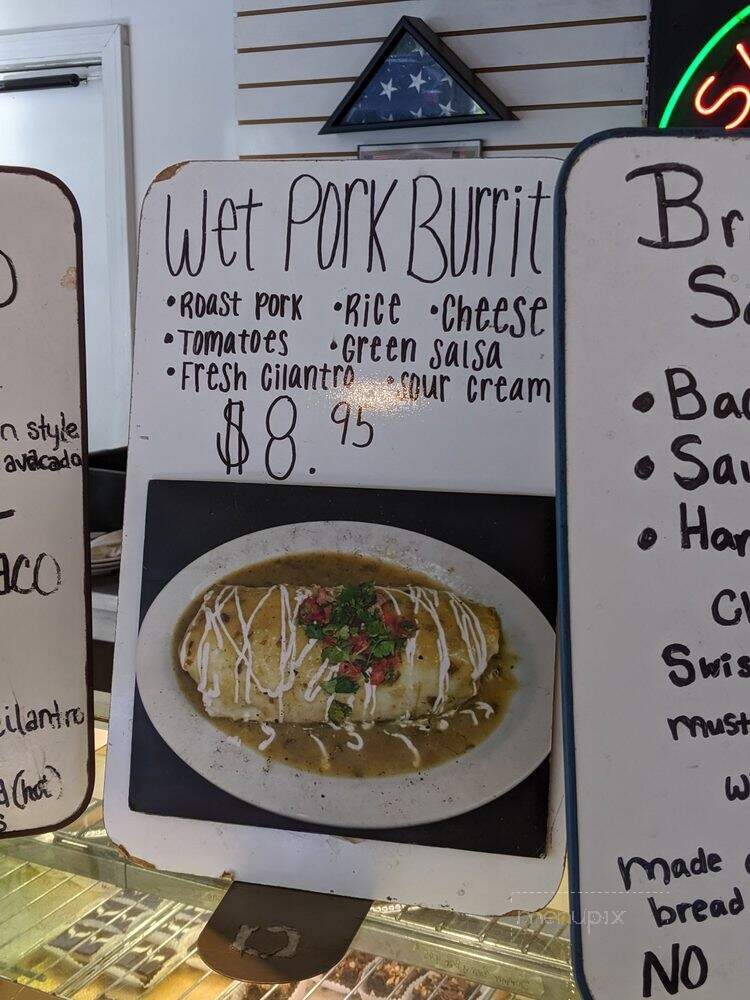 Wet Pork Burrit
•Roast pork •Rice •Cheese
•Tomatoes •Green salsa
•Fresh Cilantro •sour cream
$8.95
n style
avacado
aco
cilantro
(hot)
Br
•Ba
•Sau
•Har
Swis
must
made
bread
NO
menupix